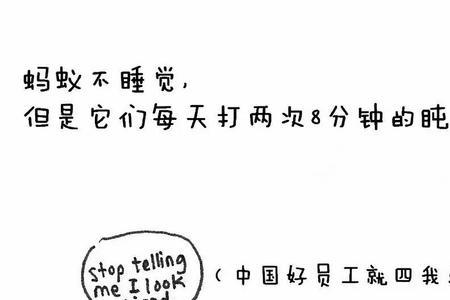 蚂蚁不睡觉,
但是它们每天打两次8分钟的盹
stop telling
me I look
(中国好员工就四我